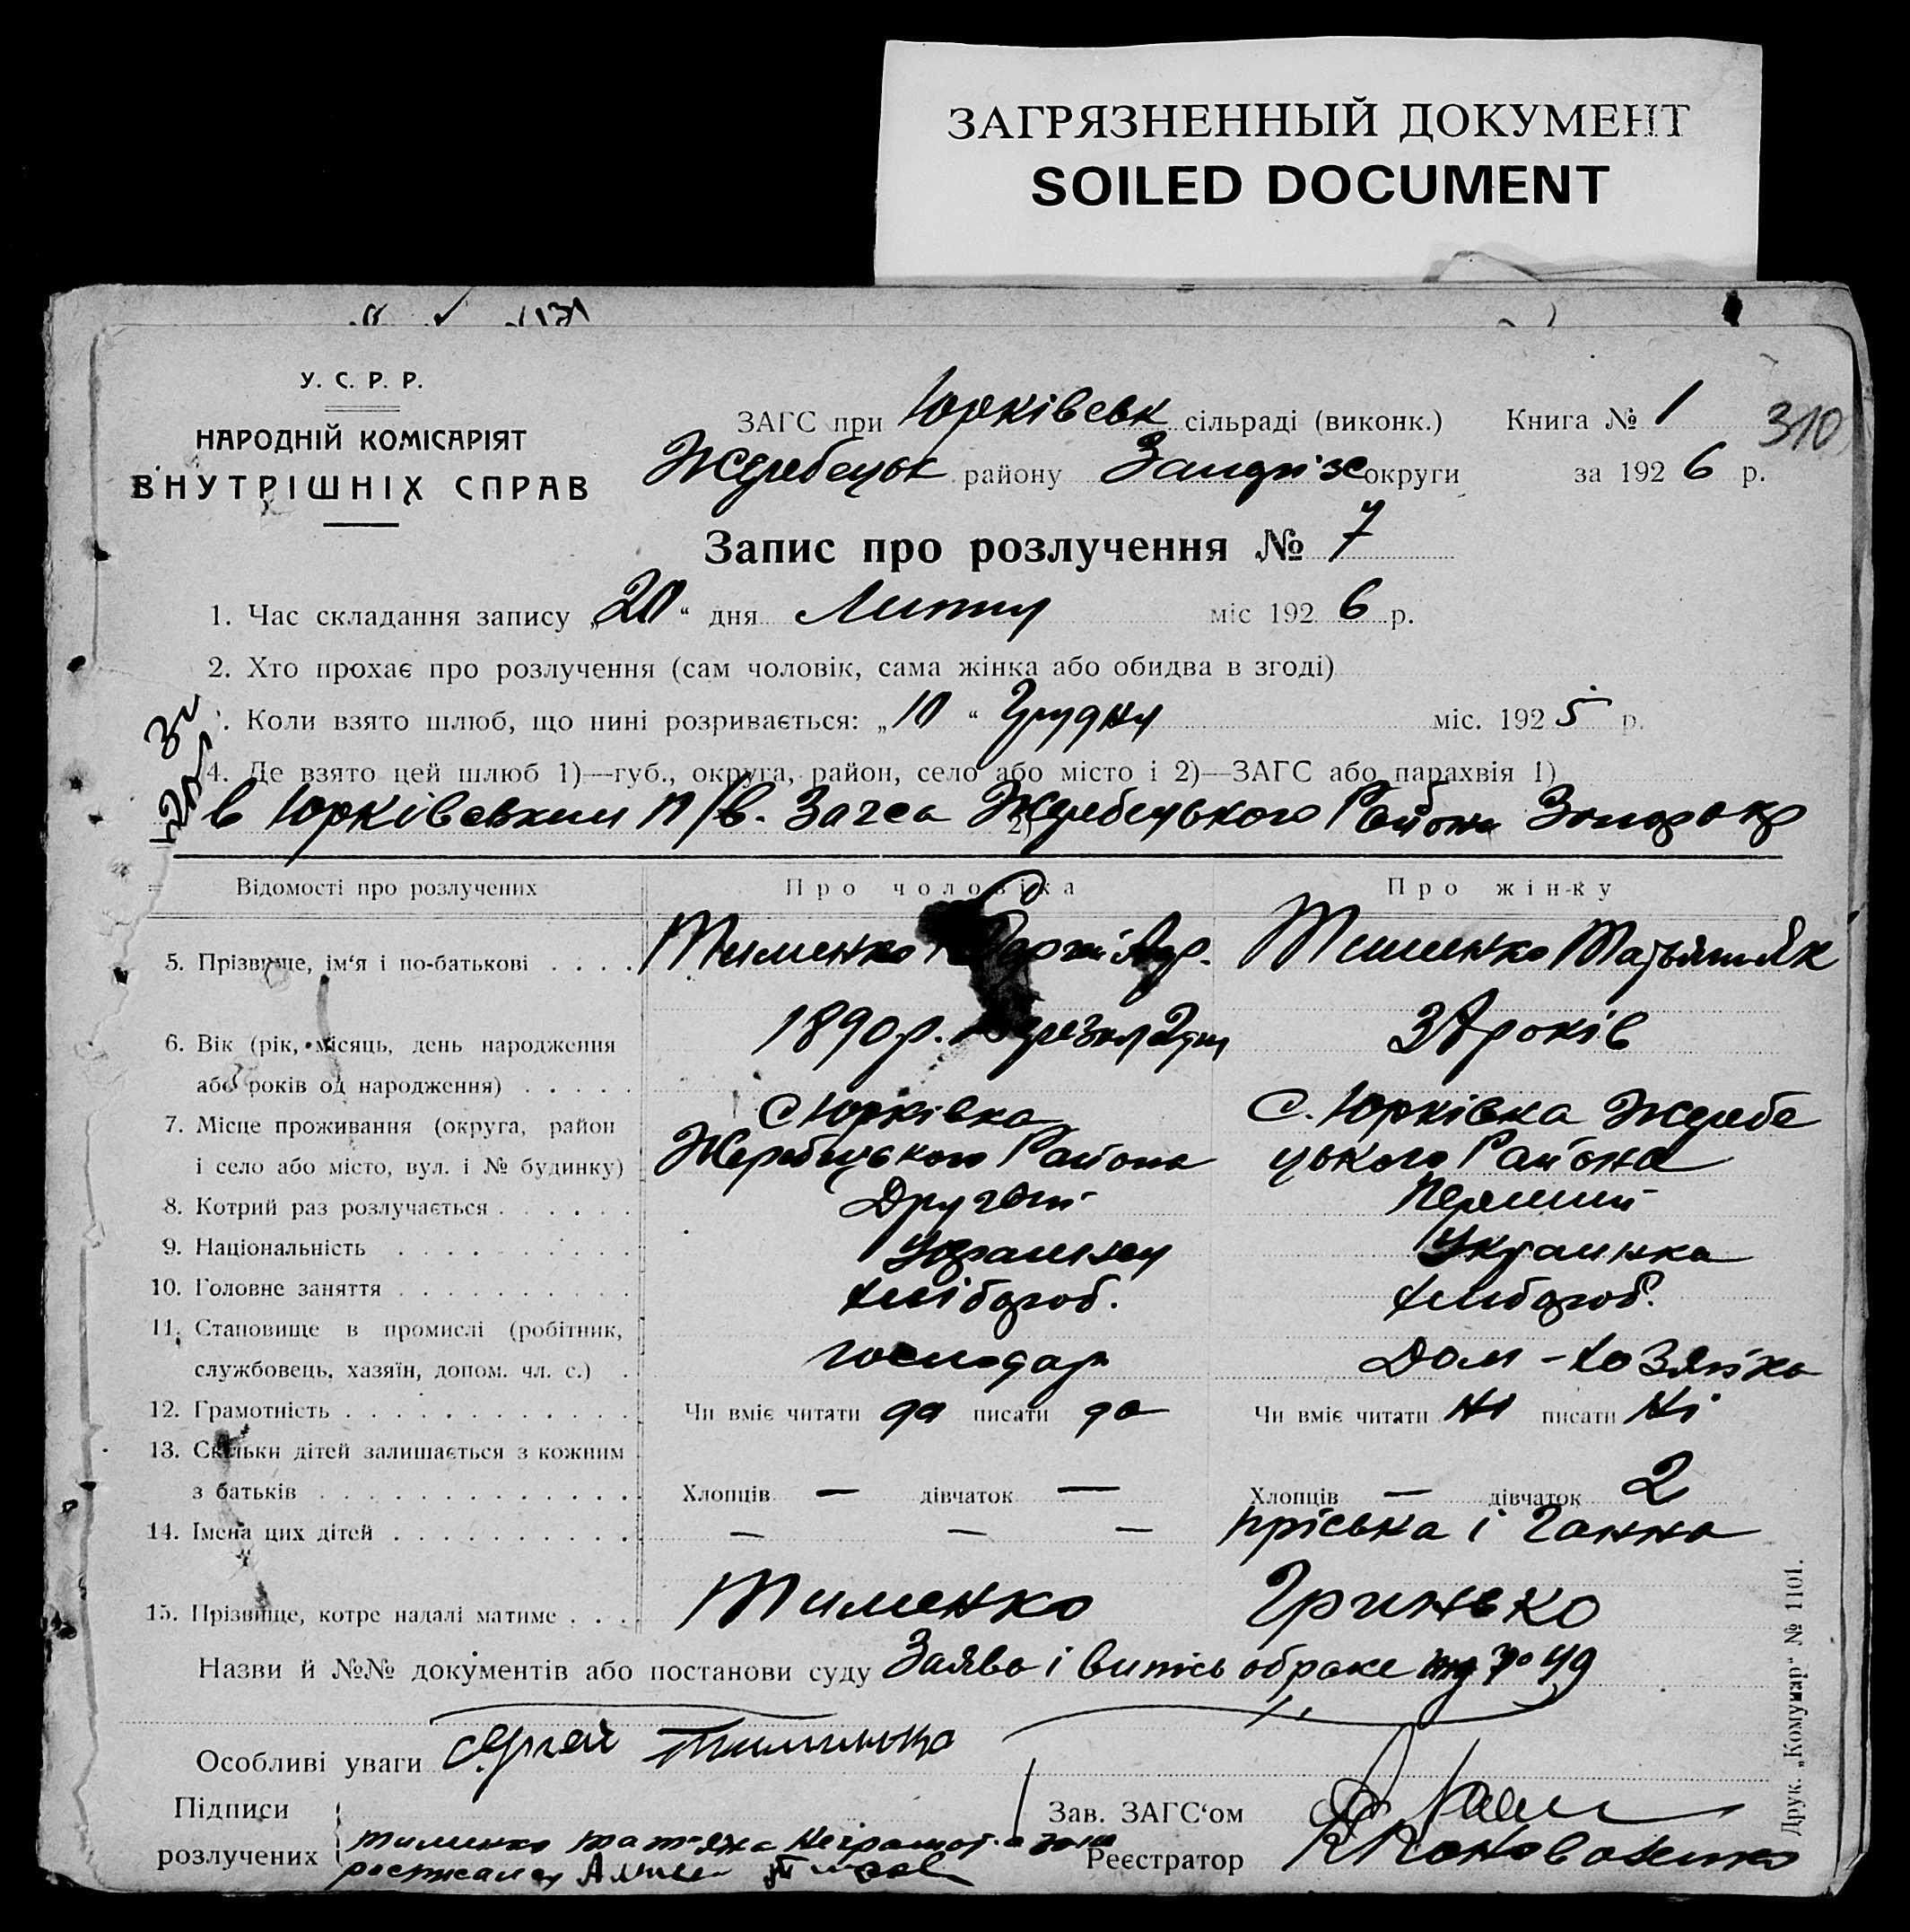 ЗАГРЯЗНЕННЫЙ ДОКУМЕНТ
SOILED DOCUMENT
У. С. Р. Р.
НАРОДНІЙ КОМІСАРІЯТ
ВНУТРІШНІХ СПРАВ
ЗАГС при Юрківськ сільраді (виконк.) Книга № 1
310
Жеребецьк району Запоріж округи за 192 6 р.
Запис про розлучення № 7
1. Час складання запису „20“ дня Лютня міс 192 6 р.
2. Хто прохає про розлучення (сам чоловік, сама жінка або обидва в згоді)
. Коли взято шлюб, що нині розривається: „10“ Грудня міс. 192 5 р.
4. Де взято цей шлюб 1)—губ., округа, район, село або місто і 2)—ЗАГС або парахвія 1)
в Юрківським п/в. Загса Жеребецького Района Запорокр
2)
Відомості про розлучених Про чоловіка Про жінку
5. Прізвище, ім'я і по-батькові . . . . Тименко Сергій Тименко Татьяна Як
6. Вік (рік, місяць, день народження 1890р. 2дня 37 років
або років од народження) . . . . .
7. Місце проживання (округа, район с Юрківка с. Юрківка Жеребе
і село або місто, вул. і № будинку) Жеребецького Района цького Района
8. Котрий раз розлучається . . . . . . Другий Перший
9. Національність . . . . . . . . . . Украинец Украинка
10. Головне заняття . . . . . . . . . . хлібороб. хлибороб.
11. Становище в промислі (робітник,
службовець, хазяїн, допом. чл. с.) . господар Дом-хозяйка
12. Грамотність . . . . . . . . . . . . Чи вміє читати да писати да Чи вміє читати ні писати ні
13. Скільки дітей залишається з кожним
з батьків . . . . . . . . . . . . . Хлопців — дівчаток — Хлопців — дівчаток 2
14. Імена цих дітей . . . . . . . . . . — — — Пріська і Ганна
15. Прізвище, котре надалі матиме . . . . Тименко Гринько
Назви й №№ документів або постанови суду Заява і випись об браке
Особливі уваги Сергей Тименко
Підписи
розлучених
Зав. ЗАГС'ом
Тименко Татяна Неграмотна
Реєстратор Коноваленко
Друк. „Комунар“ № 1101.